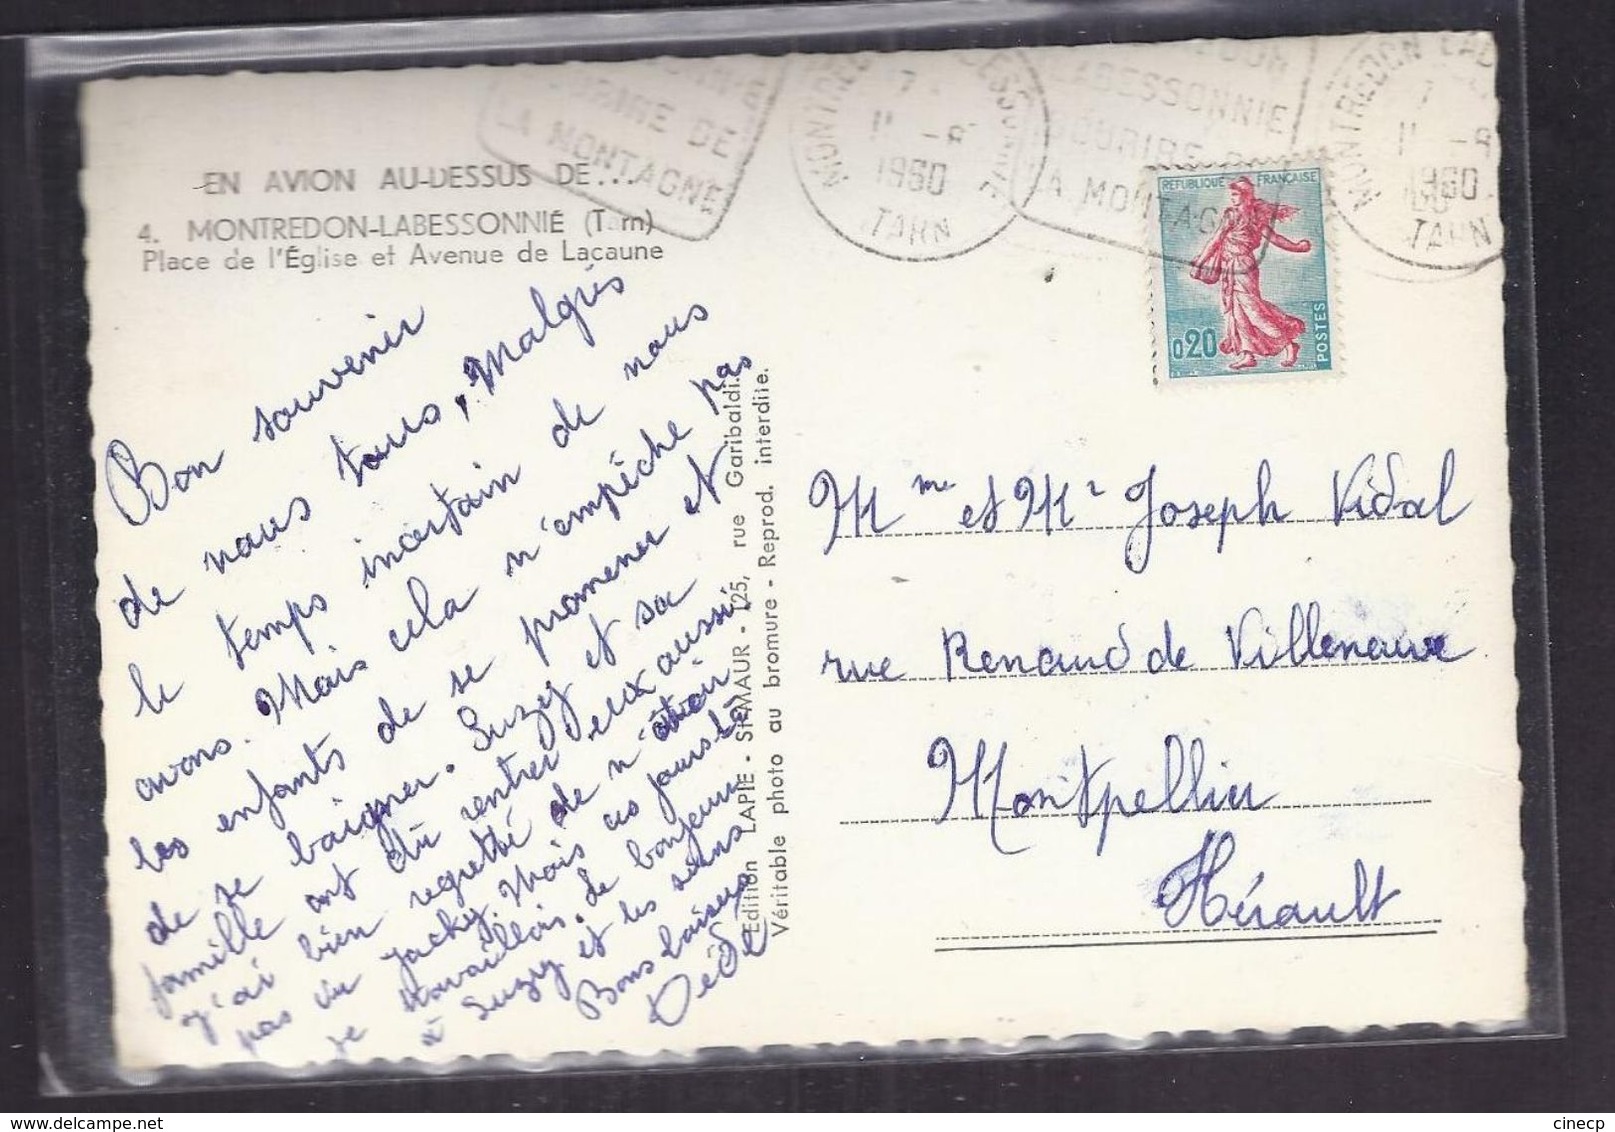 EN AVION AU-DESSUS DE...
4. MONTREDON-LABESSONNIE (Tarn)
Place de l'Église et Avenue de Lacaune
Bon souvenir
de nous tous, Malgrés
le temps incertain de nous
avons. Mais cela n'empêche pas
les enfants de se promener et
de se baigner. Suzy et sa
famille ont dû rentrer eux aussi,
j'ai bien regretté de n'avoir
pas vu Jacky, Mais ces jours là
je travaillais. de bonjour
à Suzy et les siens
Bons baisers
Dédé
Edition LAPIE - ST-MAUR - 125, rue Garibaldi.
Véritable photo au bromure - Reprod. interdite.
LA MONTAGNE
MONTREDON LABESSONNIE
11 -8
1960
TARN
LABESSONNIE
SOURIRE DE
LA MONTAGNE
MONTREDON LAB
11 -8
1960
TARN
REPUBLIQUE FRANÇAISE
0,20
POSTES
Mme et Mr Joseph Vidal
rue Renaud de Villeneuve
Montpellier
Hérault
cinecp